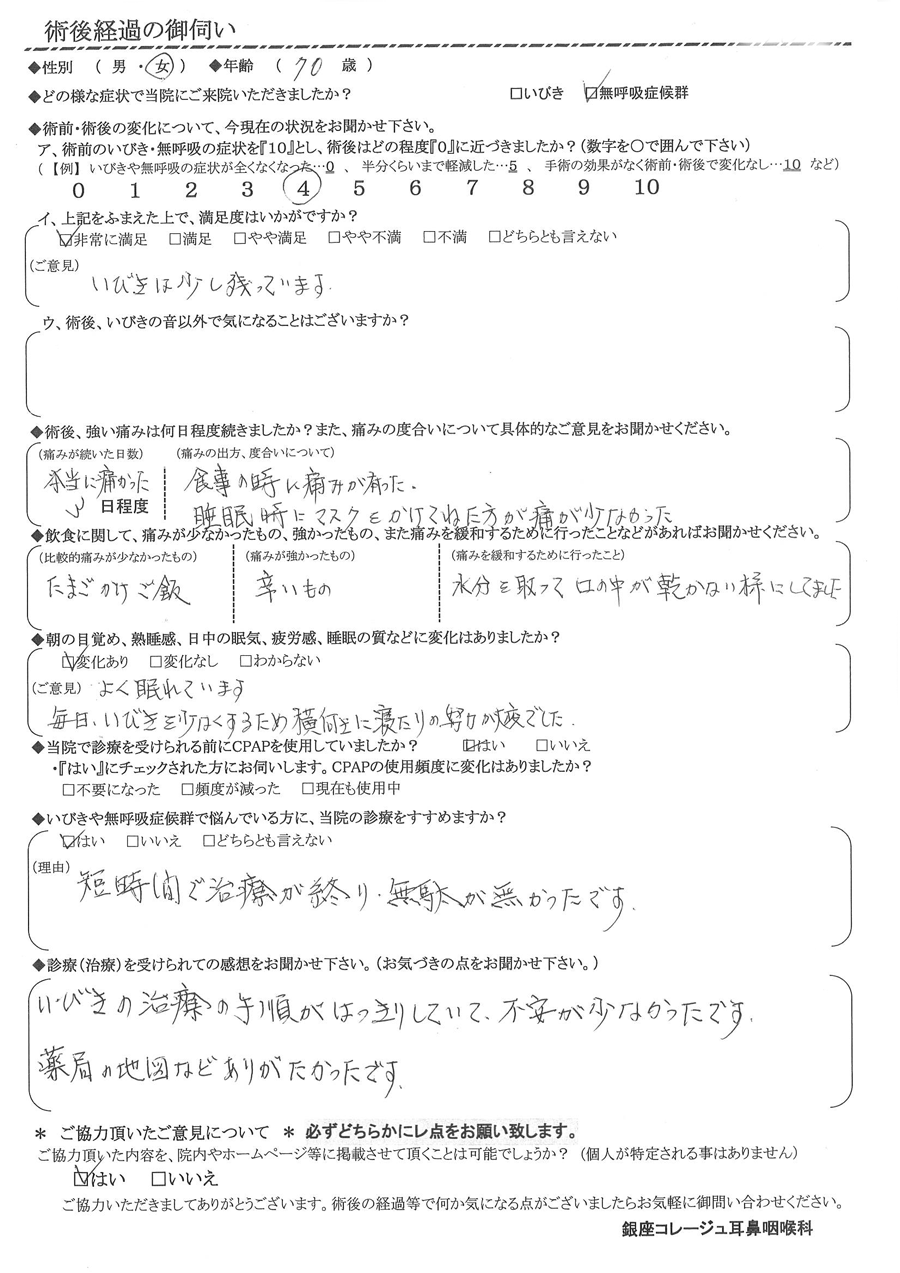 術後経過の御伺い
◆性別 （ 男 ・ 女 ） ◆年齢 （ 70 歳 ）
◆どの様な症状で当院にご来院いただきましたか？ □いびき ☑無呼吸症候群
◆術前・術後の変化について、今現在の状況をお聞かせ下さい。
ア、術前のいびき・無呼吸の症状を『10』とし、術後はどの程度『0』に近づきましたか？（数字を○で囲んで下さい）
（【例】 いびきや無呼吸の症状が全くなくなった…0 、 半分くらいまで軽減した…5 、 手術の効果がなく術前・術後で変化なし…10 など）
0 1 2 3 4 5 6 7 8 9 10
イ、上記をふまえた上で、満足度はいかがですか？
☑非常に満足 □満足 □やや満足 □やや不満 □不満 □どちらとも言えない
（ご意見）
いびきは少し残っています.
ウ、術後、いびきの音以外で気になることはございますか？
◆術後、強い痛みは何日程度続きましたか？また、痛みの度合いについて具体的なご意見をお聞かせください。
（痛みが続いた日数） （痛みの出方、度合いについて）
本当に痛かった 食事の時に痛みが有った.
日程度 睡眠時にマスクをかけてねた方が痛が少なかった
◆飲食に関して、痛みが少なかったもの、強かったもの、また痛みを緩和するために行ったことなどがあればお聞かせください。
（比較的痛みが少なかったもの） （痛みが強かったもの） （痛みを緩和するために行ったこと）
たまごかけご飯 辛いもの 水分を取って口の中が乾かない様にしてました
◆朝の目覚め、熟睡感、日中の眠気、疲労感、睡眠の質などに変化はありましたか？
☑変化あり □変化なし □わからない
（ご意見） よく眠れています
毎日、いびきを少なくするため横向きに寝たりの努力が大変でした.
◆当院で診療を受けられる前にCPAPを使用していましたか？ ☑はい □いいえ
・『はい』にチェックされた方にお伺いします。CPAPの使用頻度に変化はありましたか？
□不要になった □頻度が減った □現在も使用中
◆いびきや無呼吸症候群で悩んでいる方に、当院の診療をすすめますか？
☑はい □いいえ □どちらとも言えない
（理由）
短時間で治療が終り、無駄が無かったです.
◆診療（治療）を受けられての感想をお聞かせ下さい。（お気づきの点をお聞かせ下さい。）
いびきの治療の手順がはっきりしていて、不安が少なかったです.
薬局の地図などありがたかったです.
＊ ご協力頂いたご意見について ＊ 必ずどちらかにレ点をお願い致します。
ご協力頂いた内容を、院内やホームページ等に掲載させて頂くことは可能でしょうか？ （個人が特定される事はありません）
☑はい □いいえ
ご協力いただきましてありがとうございます。術後の経過等で何か気になる点がございましたらお気軽に御問い合わせください。
銀座コレージュ耳鼻咽喉科